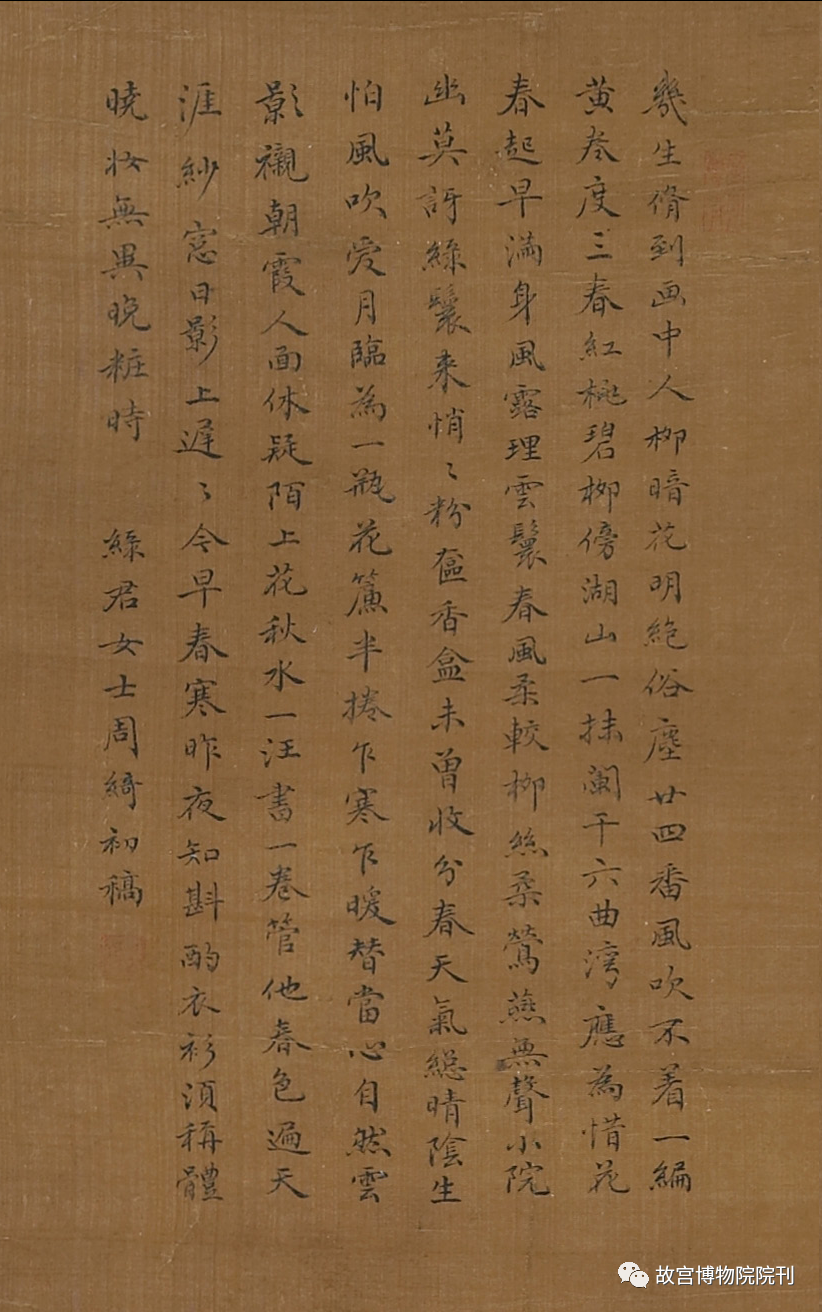 幾生脩到画中人柳暗花明絶俗塵廿四番風吹不着一編
黄卷度三春紅桃碧柳傍湖山一抹闌干六曲湾應為惜花
春起早滿身風露理雲鬟春風柔較柳絲柔鶯燕無聲小院
幽莫訝綠鬟来悄〻粉奩香盒未曾收分春天氣總晴陰生
怕風吹愛月臨為一瓶花簾半捲乍寒乍暖替當心自然雲
影襯朝霞人面休疑陌上花秋水一汪書一卷管他春色遍天
涯紗窓日影上遲〻今早春寒昨夜知斟酌衣衫須稱體
曉妆無異晚粧時 綠君女士周綺初稿
故宫博物院院刊